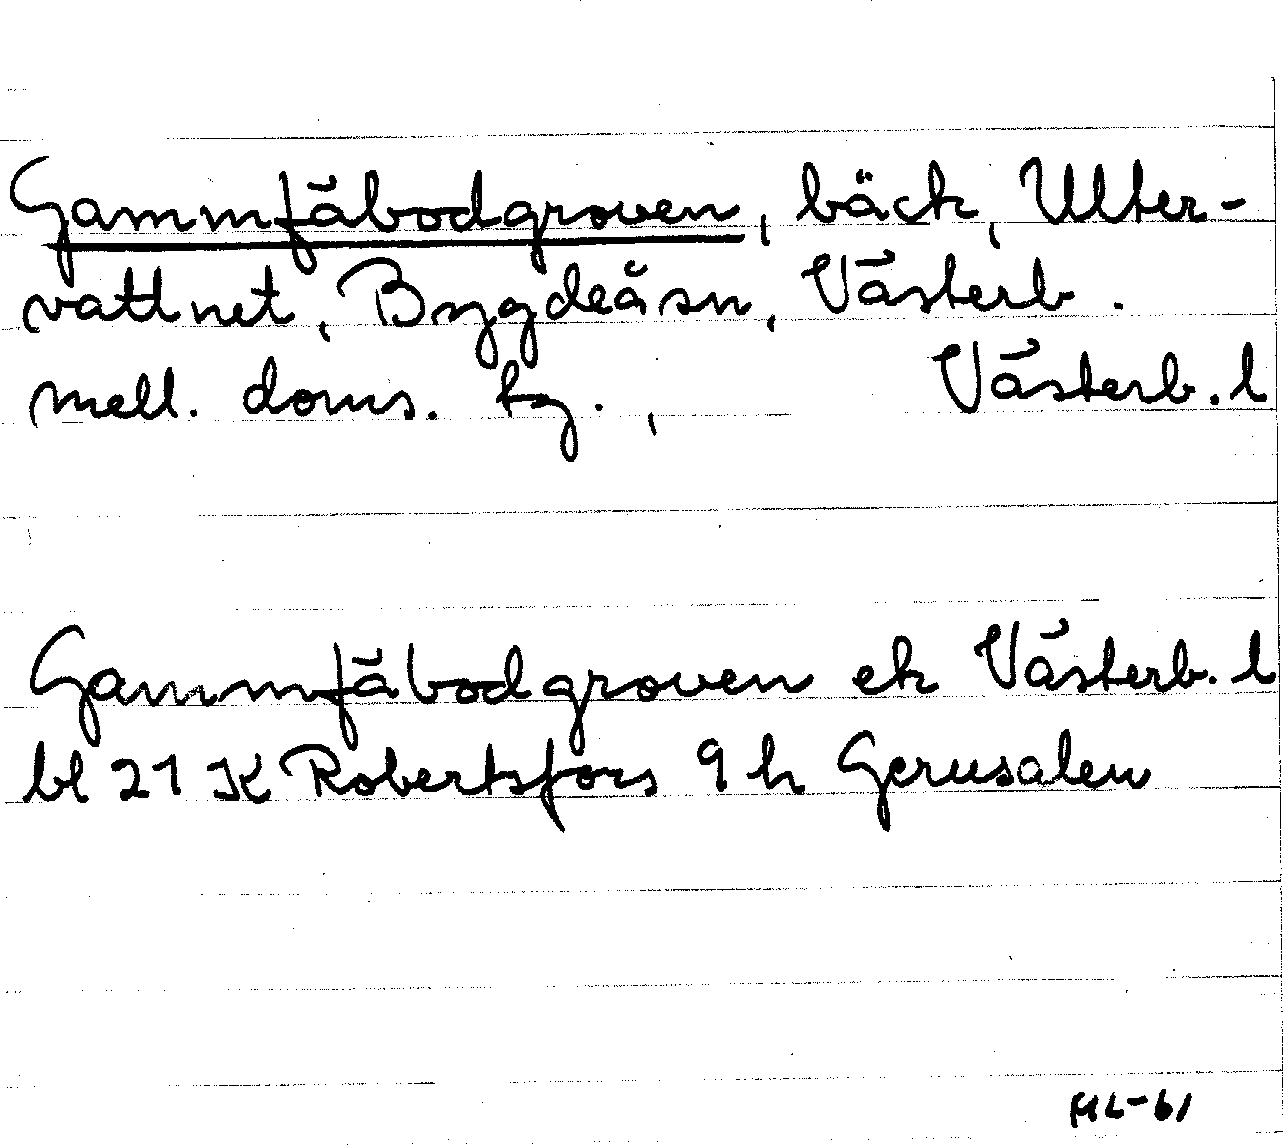 Gammfäbodgroven, bäck, Ulter-
vattnet, Bygdeå sn, Västerb.
mell. doms. tg., Västerb. l
Gammfäbodgroven ek Västerb. l
bl 21 K Robertsfors 9 h Gerusalen
ML-61